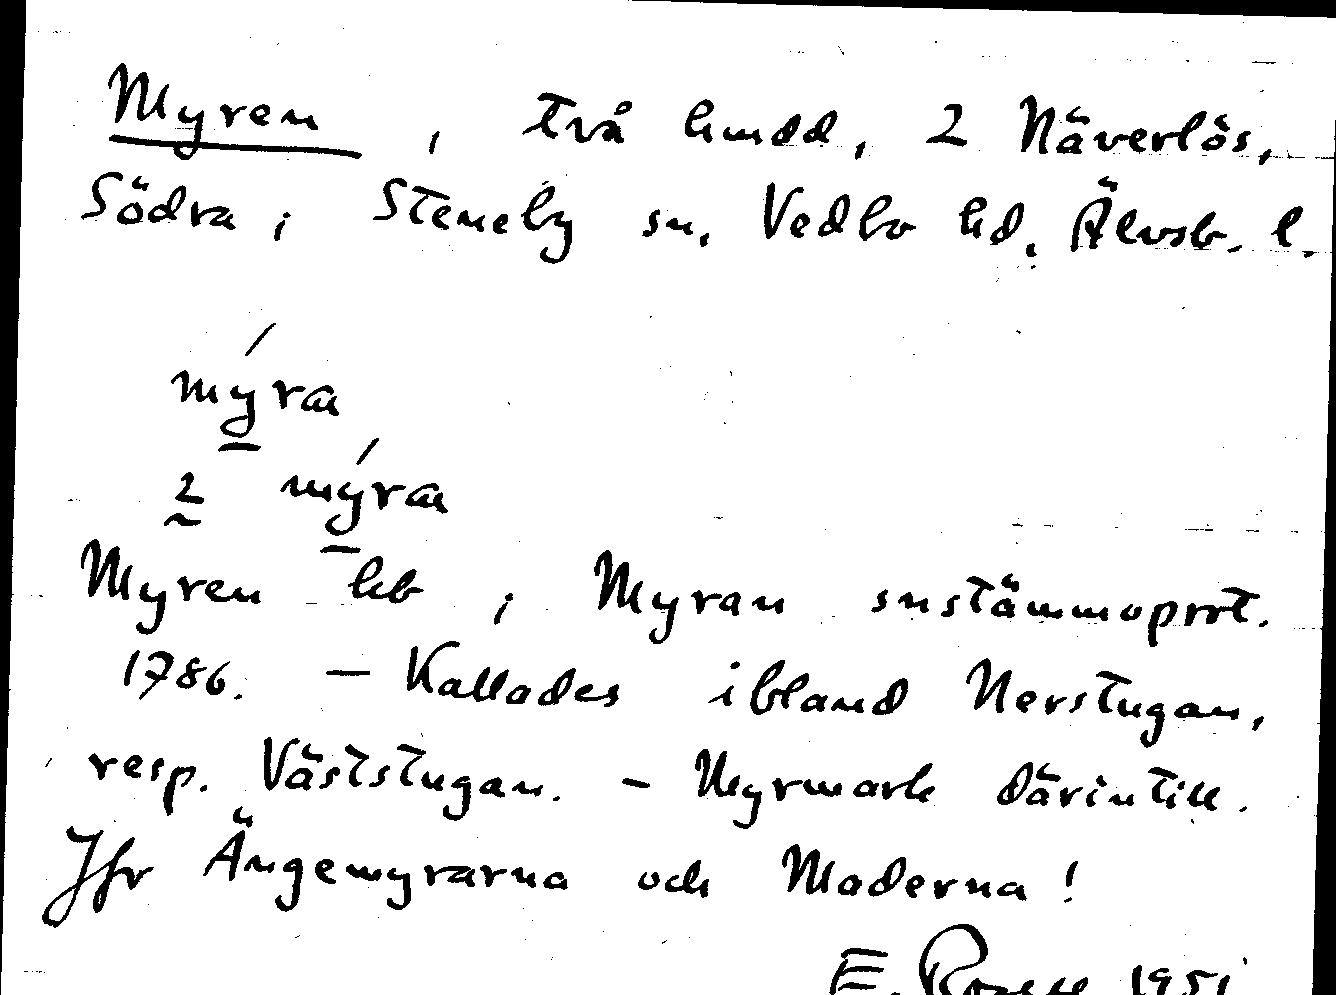 Myren, två hmdd, 2 Näverlös,
Södra i Steneby sn. Vedbo hd. Älvsb. l.
mýra
2 mýra
Myren hb ; Myran snstämmoprot.
1786. – Kallades ibland Nerstugan,
resp. Väststugan. – Myrmark därintill.
Jfr Ängemyrarna och Maderna!
E. 1951